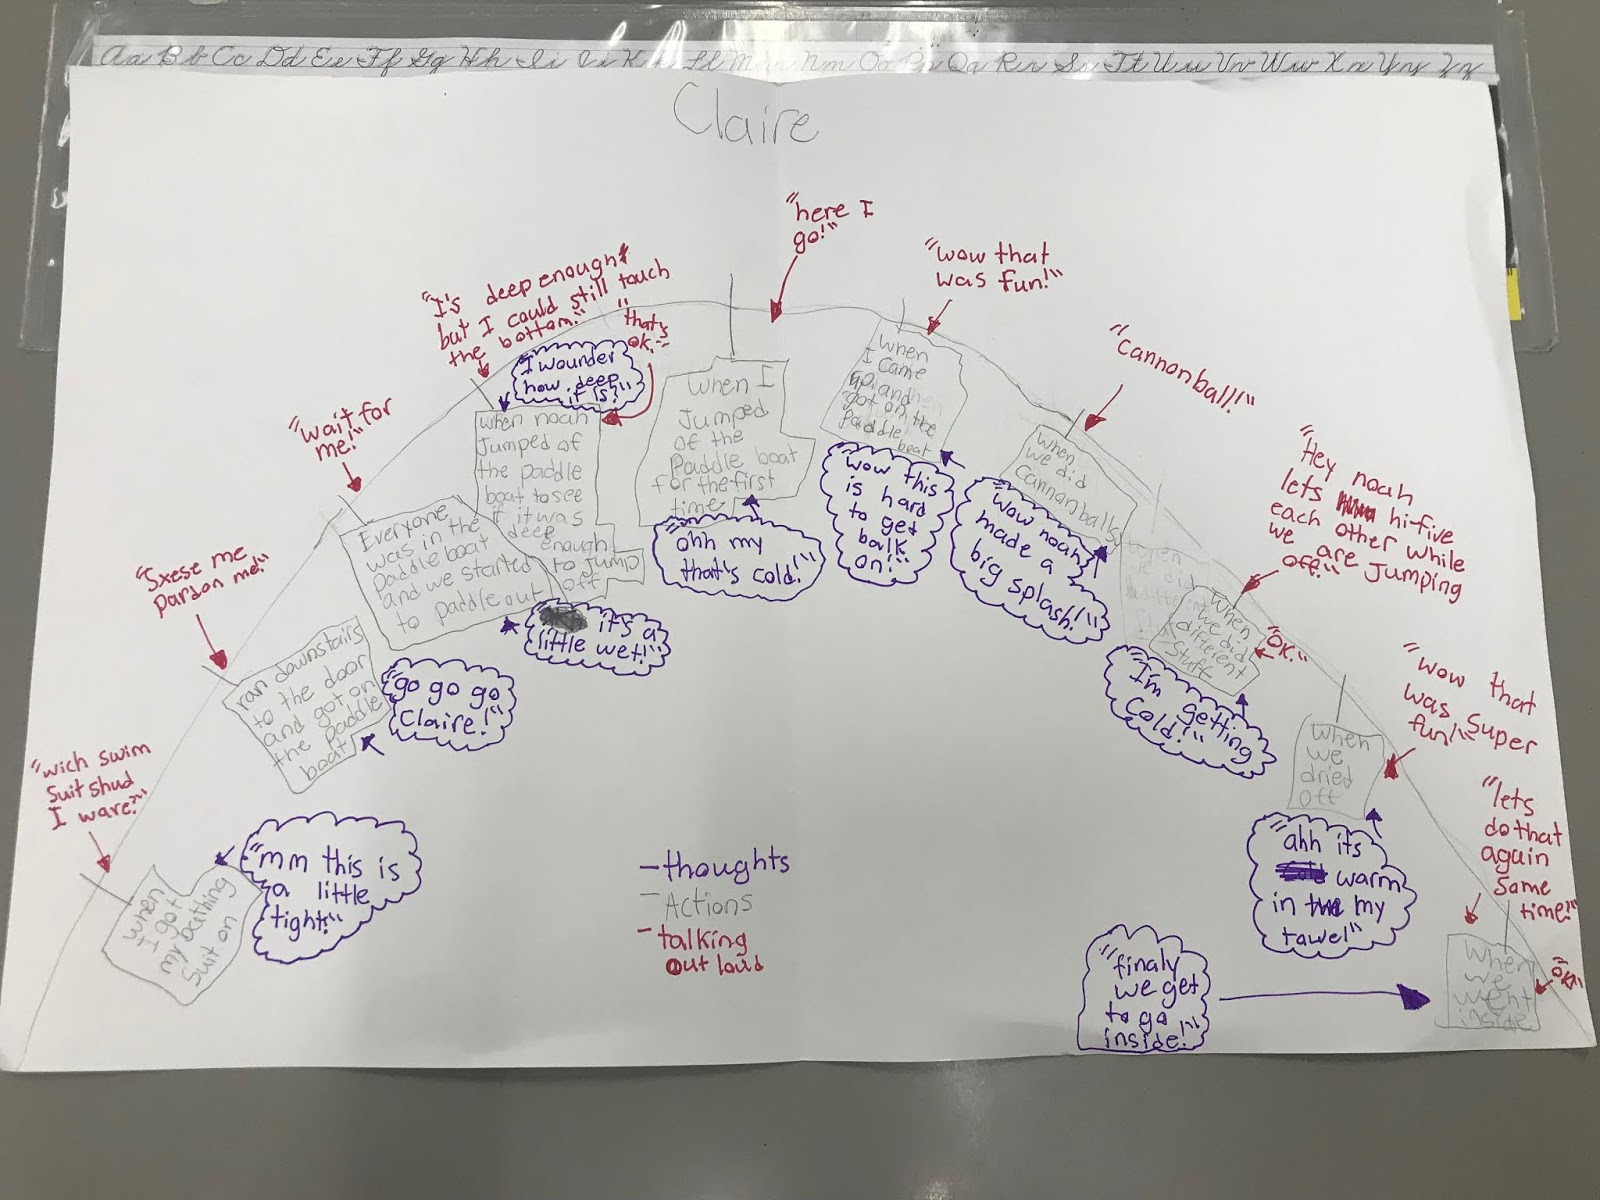 Aa Bb Cc Dd Ee Ff Gg Hh Ii
Mm Nn Oo Pp Qq Rr Ss Tt Uu Vv Ww Xx Yy Zz
Claire
"wich swim
suit shud
I ware?"
when
I got
my bathing
suit on
"mm this is
a little
tight!"
"Sxese me
pardon me!"
ran downstairs
to the door
and got on
the paddle
boat
"go go go
Claire!"
"wait for
me!"
Everyone
was in the
paddle boat
and we started
to paddle out
it's a
little wet!"
"I's deep enough
but I could still touch
the bottom."
"that's
ok."
I wounder
how deep
it is?"
when noah
Jumped of
the paddle
boat to see
if it was
deep
enough
to jump
off
"here I
go!"
when I
Jumped
of the
Paddle boat
for the first
time
"ohh my
that's cold!"
"wow that
was fun!"
when
I came
up and
got on the
Paddle boat
"wow this
is hard
to get
balk
on!"
"cannonball!"
when
we did
cannonballs
"wow noah
made a
big splash!"
"Hey noah
lets hi-five
each other while
we are jumping
off."
"OK."
when
we did
different
stuff
"I'm getting
cold!"
"wow that
was super
fun!"
when
we
dried
off
"ahh its
warm
in my
tawel"
"lets
do that
again
some
time!"
when
we
went
inside
"OK."
"finaly
we get
to go
inside!"
- thoughts
- Actions
- talking
out loud